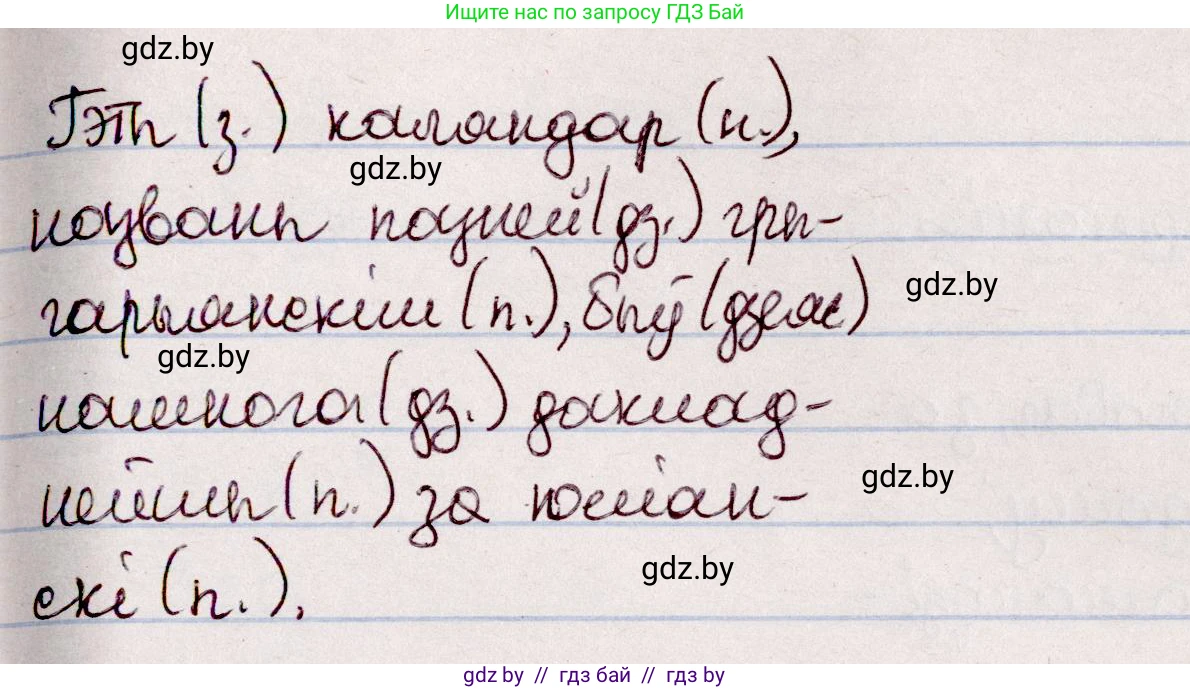 Ищите нас по запросу ГДЗ Бай
gdz.by
Гэты (з.) каляндар (н.),
gdz.by
названы пазней (дз.) гры-
гарыянскім (п.), быў (дзеяс)
gdz.by
gdz.by
намнога (дз.) даклад-
нейшы (п.) за юліан-
gdz.by
скі (п.).
gdz.by
gdz by // гдз бай // гдз by